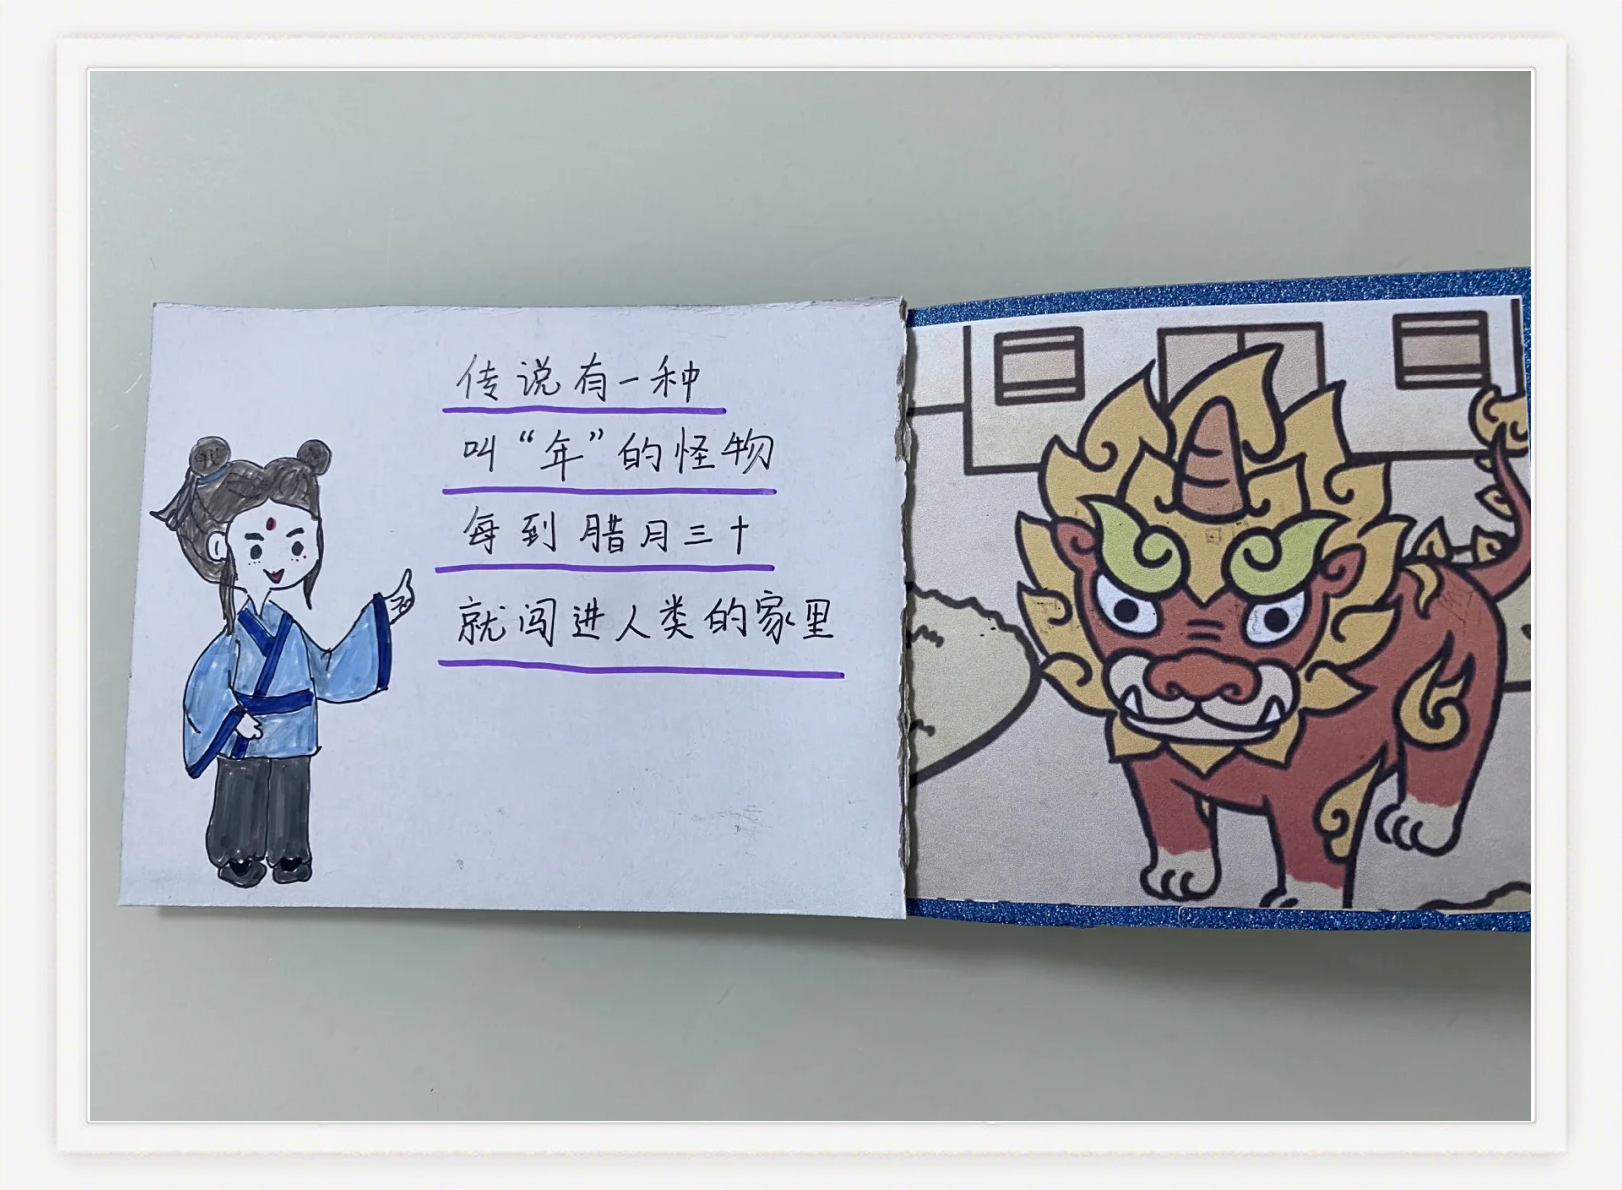 传说有一种
叫“年”的怪物
每到腊月三十
就闯进人类的家里